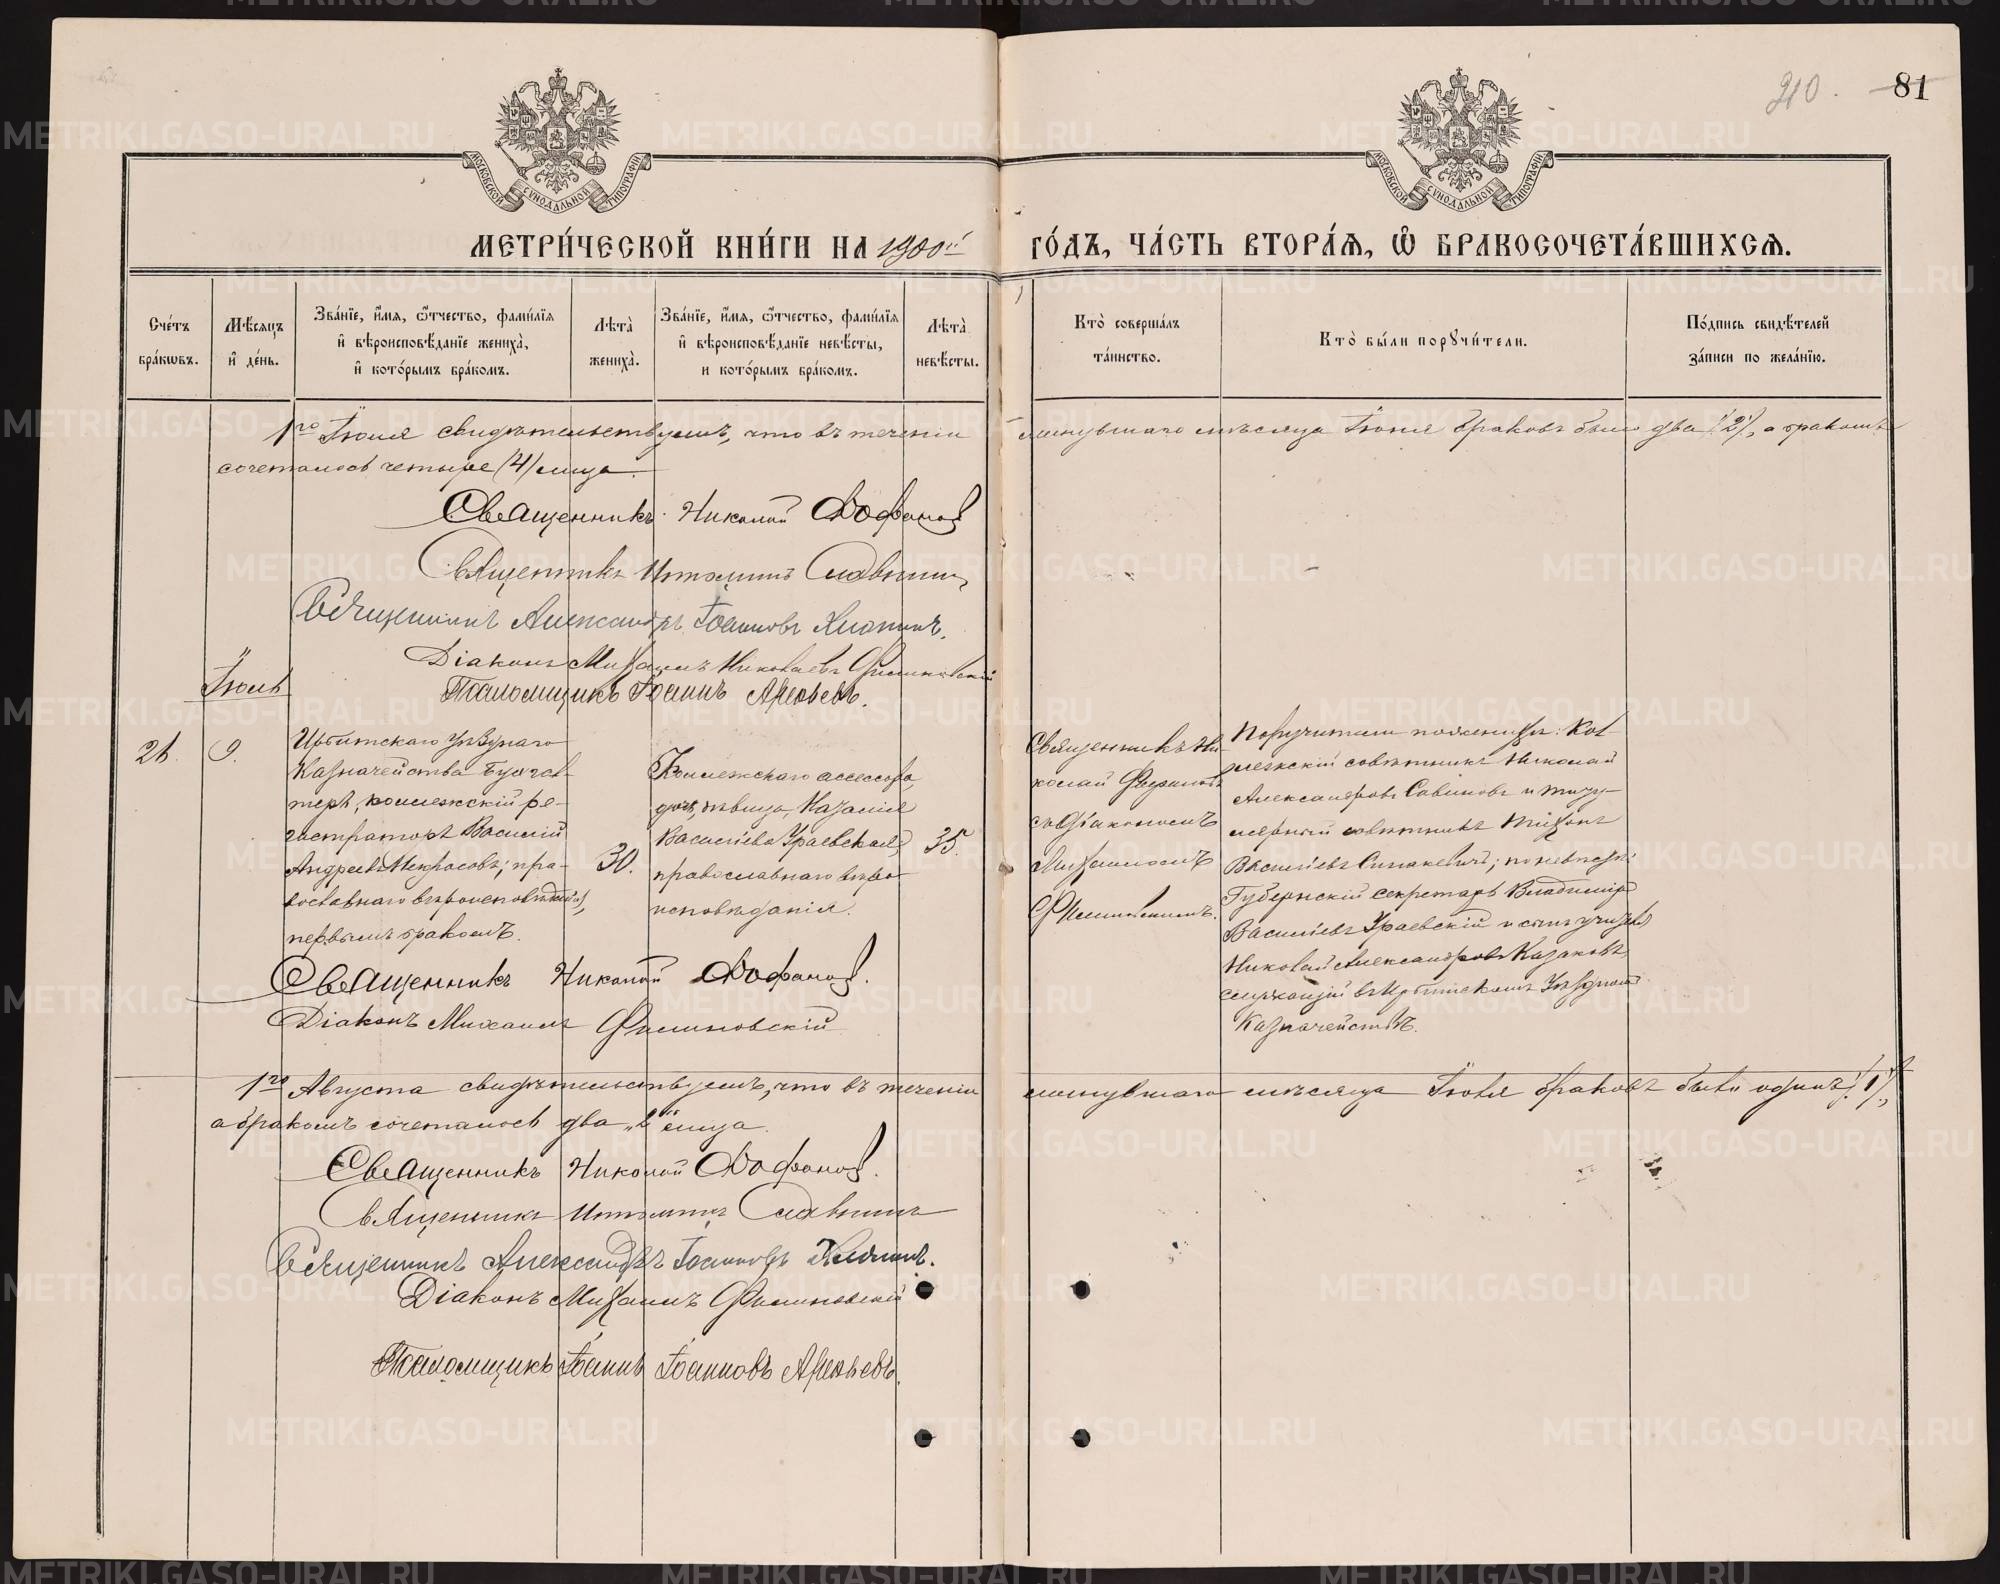 210. 81
МОСКОВСКОЙ СѴНОДАЛЬНОЙ ТИПОГРАФІИ
МОСКОВСКОЙ СѴНОДАЛЬНОЙ ТИПОГРАФІИ
МЕТРИ́ЧЕСКОЙ КНИ́ГИ НА 1900й ГО́ДЪ, ЧА́СТЬ ВТОРА́Я, Ѽ БРАКОСОЧЕТА́ВШИХСЯ.
Сче́тъ бра́кѡвъ.
Мѣ́сяцъ и҆ де́нь.
Зва́нїе, и҆́мя, ѻ҆́тчество, фами́лїя и҆ вѣроисповѣ́данїе жениха̀, и҆ кото́рымъ бра́комъ.
Лѣта̀ жениха̀.
Зва́нїе, и҆́мя, ѻ҆́тчество, фами́лїя и҆ вѣроисповѣ́данїе невѣ́сты, и кото́рымъ бра́комъ.
Лѣта̀ невѣ́сты.
Кто̀ соверша́лъ та́инство.
Кто̀ бы́ли порꙋчи́тели.
По́дпись свидѣ́телей за́писи по жела́нїю.
1го Іюля свидѣтельствуемъ, что въ теченіи минувшаго мѣсяца Іюня браковъ было два /2/, а бракомъ
сочеталось четыре /4/ лица.
Священникъ Николай
Священникъ Славнинъ
Священникъ Александръ Іоанновъ
Діаконъ Михаилъ Николаевъ Филиновскій
Псаломщикъ Іоаннъ Арефьевъ.
Іюль
21. 9.
Ирбитскаго Уѣзднаго
Казначейства Бухгал-
теръ, коллежскій ре-
гистраторъ Василій
Андреевъ Некрасовъ; пра-
вославнаго вѣроисповѣданія,
первымъ бракомъ.
30.
Коллежскаго ассесора
дочь, дѣвица,
Васильева Ураевская,
православнаго вѣро-
исповѣданія.
35.
Священникъ Ни-
колай
съ Діакономъ
Михаиломъ
Филиновскимъ.
Поручители по женихѣ: Кол-
лежскій совѣтникъ Николай
Александровъ Савиновъ и титу-
лярный совѣтникъ Тихонъ
Васильевъ по невѣстѣ:
Губернскій секретарь Владиміръ
Васильевъ Ураевскій и
Николай Александровъ Казаковъ,
служащій въ Ирбитскомъ Уѣздномъ
Казначействѣ.
Священникъ Николай
Діаконъ Михаилъ Филиновскій
1го Августа свидѣтельствуемъ, что въ теченіи минувшаго мѣсяца Іюля браковъ было одинъ /1/,
а бракомъ сочеталось два „2" лица.
Священникъ Николай
Священникъ Славнинъ
Священникъ Александръ Іоанновъ
Діаконъ Михаилъ Филиновскій
Псаломщикъ Іоаннъ Іоанновъ Арефьевъ.
METRIKI.GASO-URAL.RU